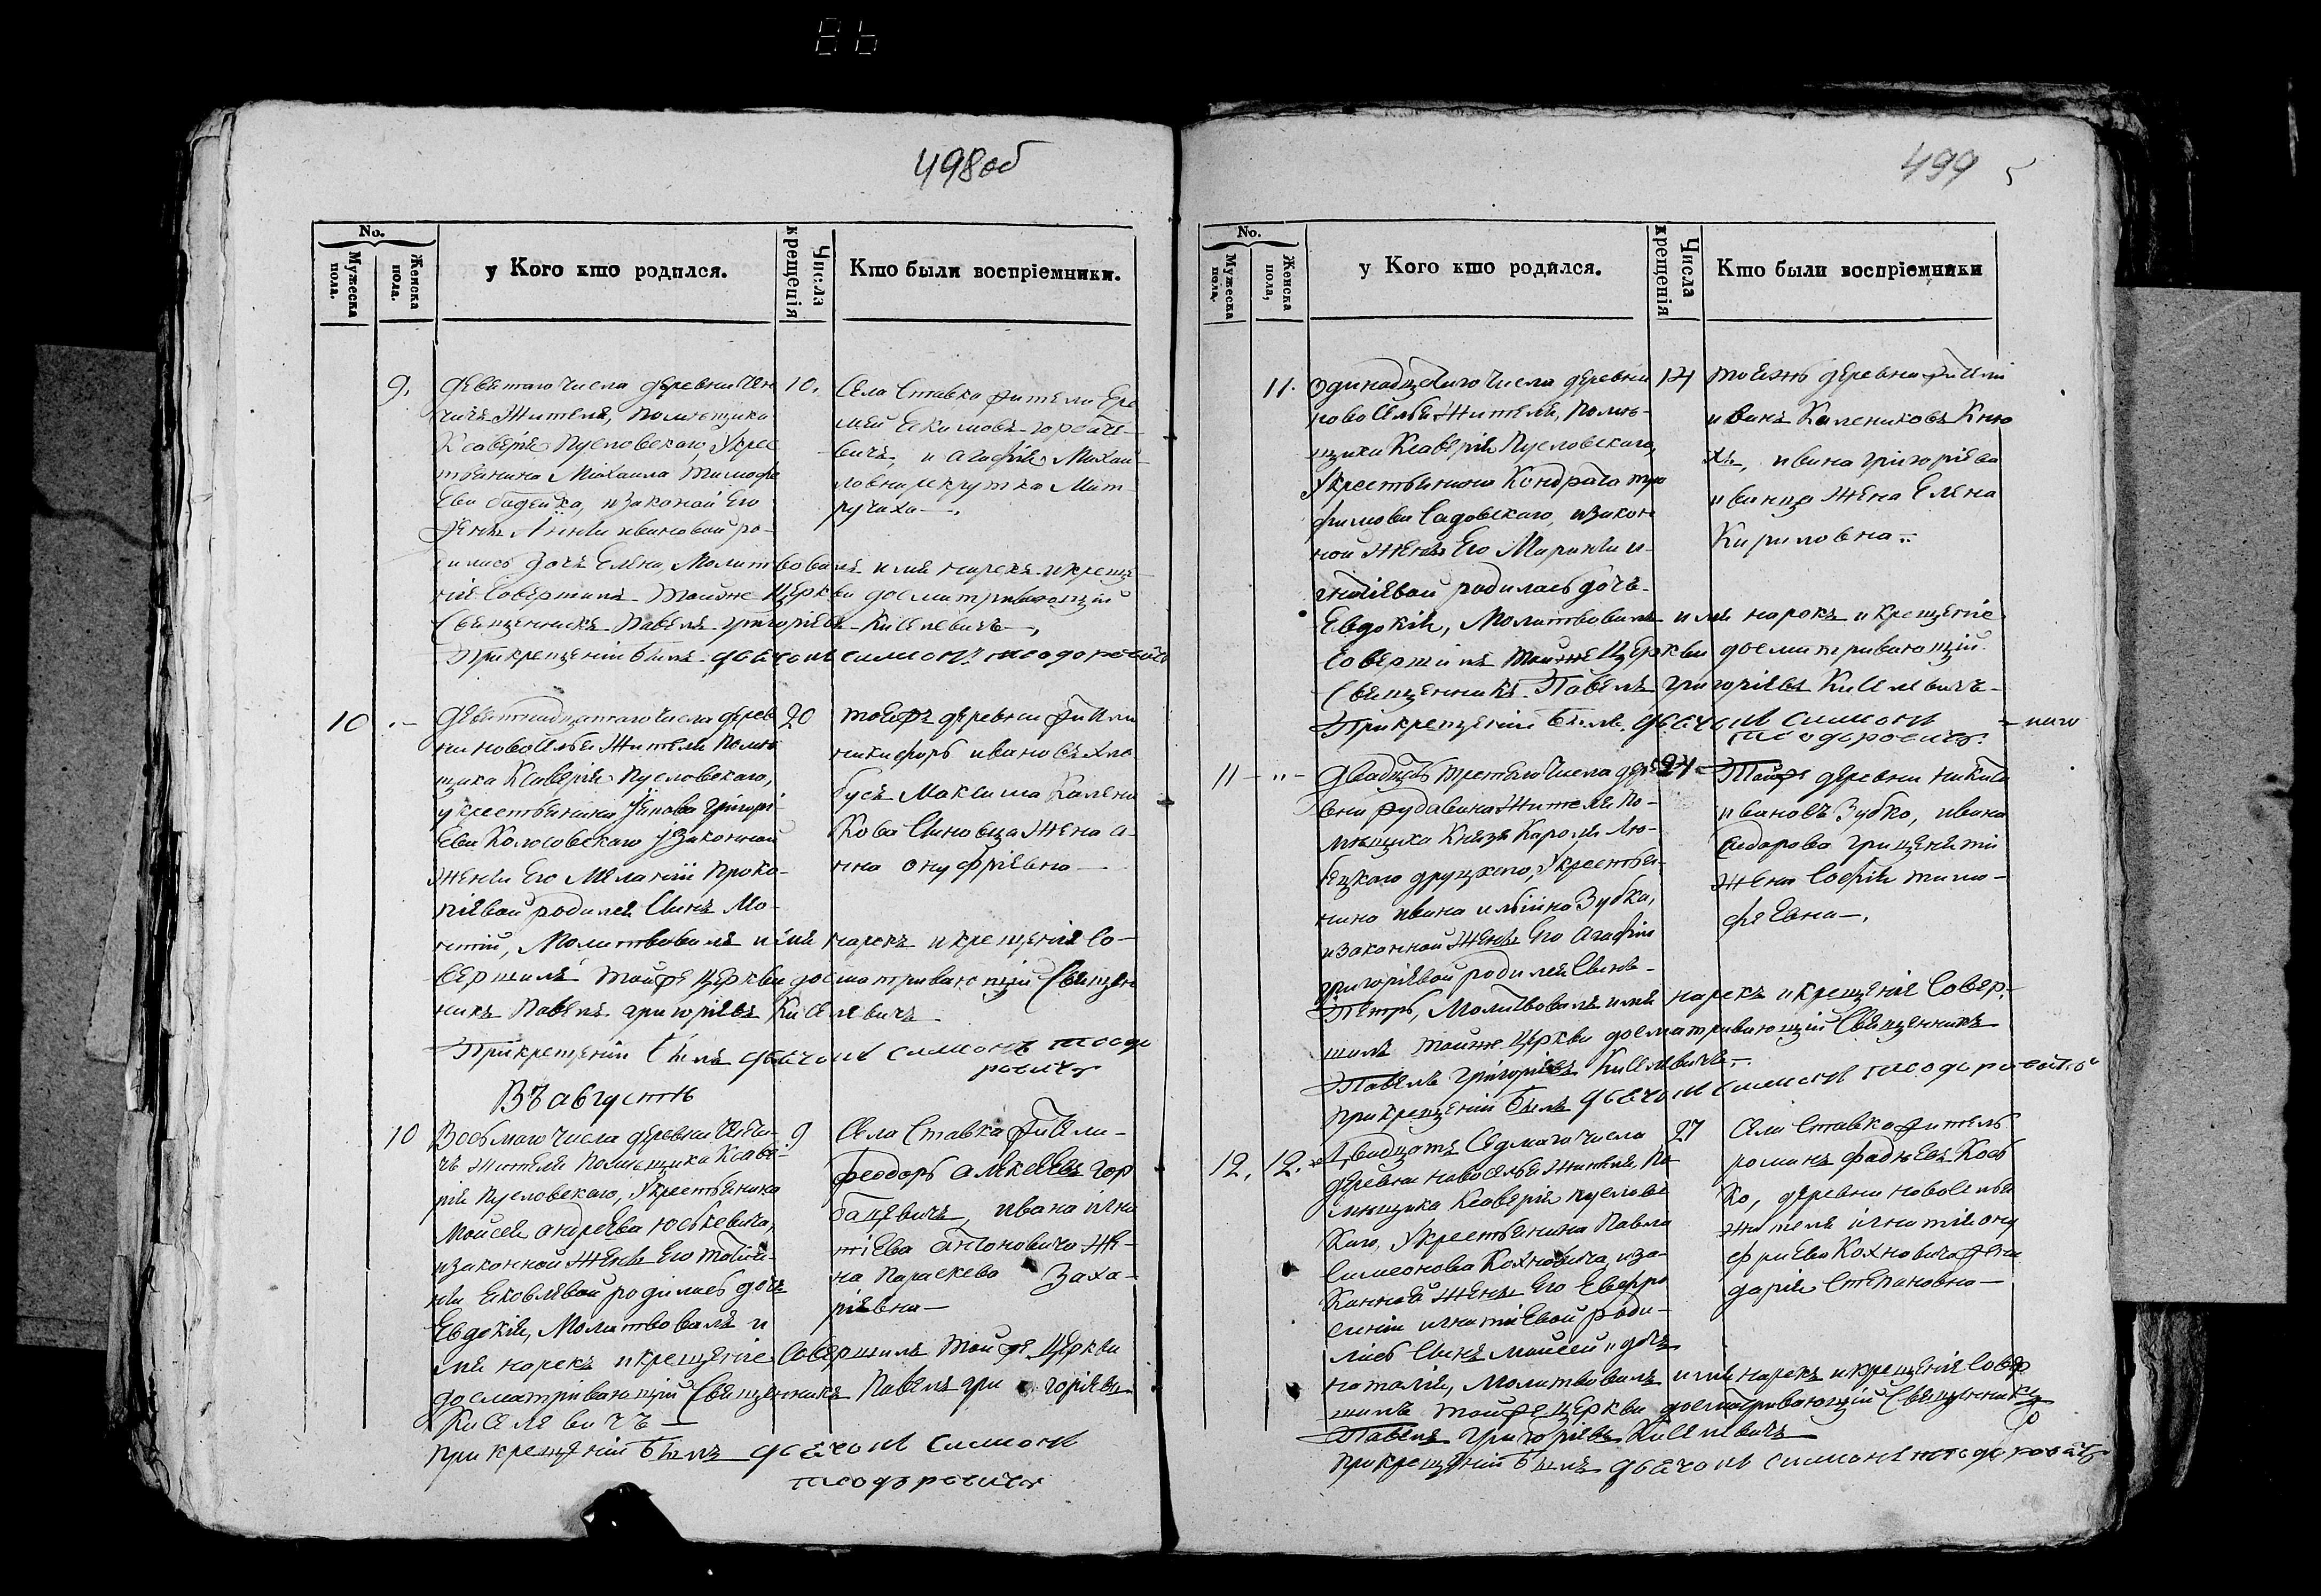 498об
No.
Мужеска пола.
Женска пола.
у Кого кто родился.
Числа крещенія
Кто были воспріемники.
9.
девятаго числа деревни
чичъ жителя, помещика
Ксаверія Пусловскаго, Укрес
тьянина Михаила Тимофе
ева изаконой Его
жены Анны ивановой ро-
дилась дочь Елена, Молитвовалъ имя нарекъ икреще
ніе Совершилъ тойже Церкви досматривающій
Священникъ Павелъ григоріевъ Киселевичъ
Прикрещеніи былъ дьячокъ симонъ теодоровичъ
10.
Села Ставка жители Ере
мей Екимовъ горбаце-
вичъ, и агафія Михай
ловна рекрутка Мит
ручиха
10
девятнадцатаго числа дерев
ни новоселья жителя помѣ
щика Ксаверія Пусловскаго,
укрестьянина Якова григорі
ева Колосовскаго изаконной
жены Его Меланіи Проко-
піевой родился Сынъ Мо-
кій, Молитвовалъ имя нарекъ икрещеніе Со-
вершилъ тойже церкви досматривающій Священ
никъ Павелъ григоріевъ Киселевичъ
Прикрещеніи былъ дьячокъ симонъ теодо
ровичъ
20
тоейже деревни жители
никифоръ ивановъ хло
бусъ Максима Калени
Кова Синовца жена а-
нна онуфріевна
Въ августѣ
10
Восьмаго числа деревни
чъ жителя Помѣщика Ксаве-
рія Пусловскаго, Укрестьянина
Моисея андреева юсткевича,
изаконной жены Его татія-
ны Яковлевой родилась дочь
Евдокія, Молитвовалъ и
мя нарекъ икрещеніе Совершилъ тойже Церкви
досматривающій Священникъ Павелъ григоріевъ
Киселевичъ
прикрещеніи былъ дьячокъ симонъ
теодоровичъ
9
Села Ставка жители
феодоръ алексѣевъ гор
бацевичъ, ивана игна
тіева антоновича же-
на Параскева Заха-
ріевна
499
5
No.
Мужеска пола.
Женска пола,
у Кого кто родился.
Числа крещенія
Кто были воспріемники
11.
Одинадцетаго числа деревни
новоселья жителя, помѣ-
щика Ксаверія Пусловскаго,
Укрестьянина Кондрата тро
фимова Садовскаго, изакон
ной жены Его Маріанны и-
гнатіевой родилась дочь
Евдокія, Молитвовалъ имя нарокъ икрещеніе
Совершилъ тойже Церкви досматривающій
Священникъ Павелъ григоріевъ Киселевичъ
Прикрещеніи былъ дьячокъ симонъ
теодоровичъ.
14
тоейжъ деревни жители
иванъ Калениковъ Кню
хъ, ивана григоріева
иванца жена Елена
Кириловна
11
двадцать третьяго числа дере
вни рудавина жителя по-
мещика Князя Кароля Лю-
бецкаго друцкаго, Укрестья-
нина ивана ильина Зубка,
изаконной жены Его Агафіи
григоріевой родился Сынъ
Петръ, Молитвовалъ имя нарекъ икрещеніе Совер-
шилъ тойже Церкви досматривающій Священникъ
Павелъ григоріевъ Киселевичъ
прикрещеніи былъ дьячокъ симонъ теодоровичъ
24
Тойже деревни никита
ивановъ Зубко, ивана
Сидорова грицени
жена Софія тимо-
феевна
12. 12.
двадцать Седмаго числа
деревни новоселья жителя, по
мещика Ксаверія пуслове
каго, Укрестьянина Павла
Симеонова Кохновича, иза-
конной жены Его Евфро
синіи игнатіевой роди-
лись Сынъ моисей и дочь
наталія, Молитвовалъ имя нарекъ икрещеніе Совер
шилъ тойже церкви досматривающій Священникъ
Павелъ григоріевъ Киселевичъ
прикрещеніи былъ дьячокъ симонъ теодоровичъ
27
Села Ставка житель
романъ фадѣевъ Коб
ко, деревни новоселья
жителя игнатія ону
фріева Кохновича жена
дарія Степановна